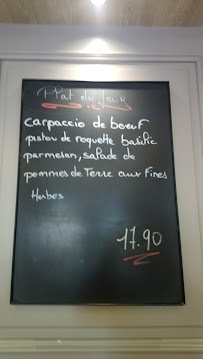 Plat du Jour
carpaccio de boeuf
pistou de roquette basilic
parmesan, salade de
pommes de Terre aux Fines
Herbes
17.90